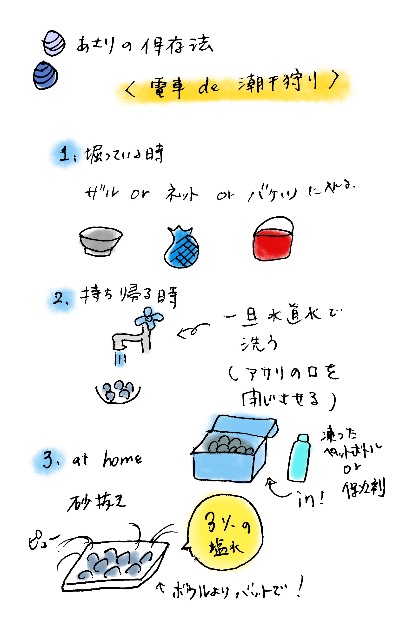 あさりの保存法
< 電車 de 潮干狩り >
1. 堀っている時
ザル or ネット or バケツに入れる.
2. 持ち帰る時
一旦水道水で
洗う
(アサリの口を
閉じさせる)
凍った
ペットボトル
or
保冷剤
in!
3. at home
砂抜き
ピュー
3%の
塩水
ボウルよりバットで!